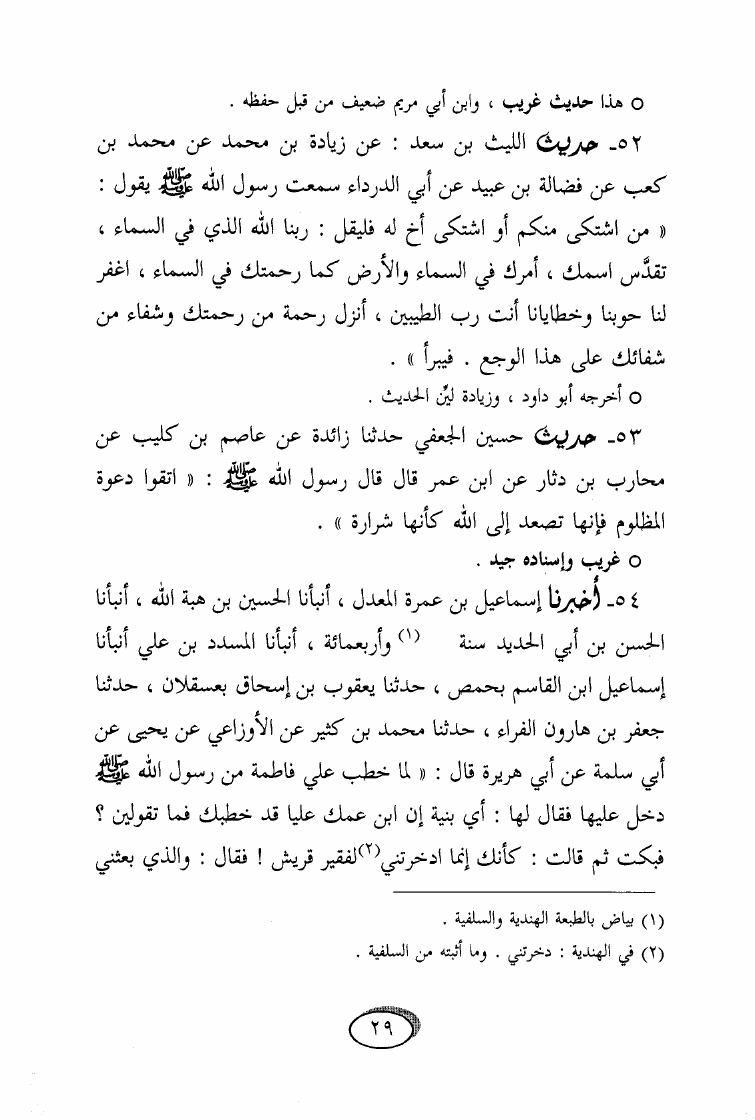 ○ هذا حديث غريب ، وابن أبي مريم ضعيف من قبل حفظه .
٥٢ـ حديث الليث بن سعد : عن زيادة بن محمد عن محمد بن
كعب عن فضالة بن عبيد عن أبي الدرداء سمعت رسول الله ﷺ يقول :
« من اشتكى منكم أو اشتكى أخ له فليقل : ربنا الله الذي في السماء ،
تقدَّس اسمك ، أمرك في السماء والأرض كما رحمتك في السماء ، اغفر
لنا حوبنا وخطايانا أنت رب الطيبين ، أنزل رحمة من رحمتك وشفاء من
شفائك على هذا الوجع . فيبرأ » .
○ أخرجه أبو داود ، وزيادة ليِّن الحديث .
٥٣ـ حديث حسين الجعفي حدثنا زائدة عن عاصم بن كليب عن
محارب بن دثار عن ابن عمر قال قال رسول الله ﷺ : « اتقوا دعوة
المظلوم فإنها تصعد إلى الله كأنها شرارة » .
○ غريب وإسناده جيد .
٥٤ـ أخبرنا إسماعيل بن عمرة المعدل ، أنبأنا الحسين بن هبة الله ، أنبأنا
الحسن بن أبي الحديد سنة (١) وأربعمائة ، أنبأنا المسدد بن علي أنبأنا
إسماعيل ابن القاسم بحمص ، حدثنا يعقوب بن إسحاق بعسقلان ، حدثنا
جعفر بن هارون الفراء ، حدثنا محمد بن كثير عن الأوزاعي عن يحيى عن
أبي سلمة عن أبي هريرة قال : « لما خطب علي فاطمة من رسول الله ﷺ
دخل عليها فقال لها : أي بنية إن ابن عمك عليا قد خطبك فما تقولين ؟
فبكت ثم قالت : كأنك إنما ادخرتني(٢)لفقير قريش ! فقال : والذي بعثني
(١) بياض بالطبعة الهندية والسلفية .
(٢) في الهندية : دخرتني . وما أثبته من السلفية .
٢٩